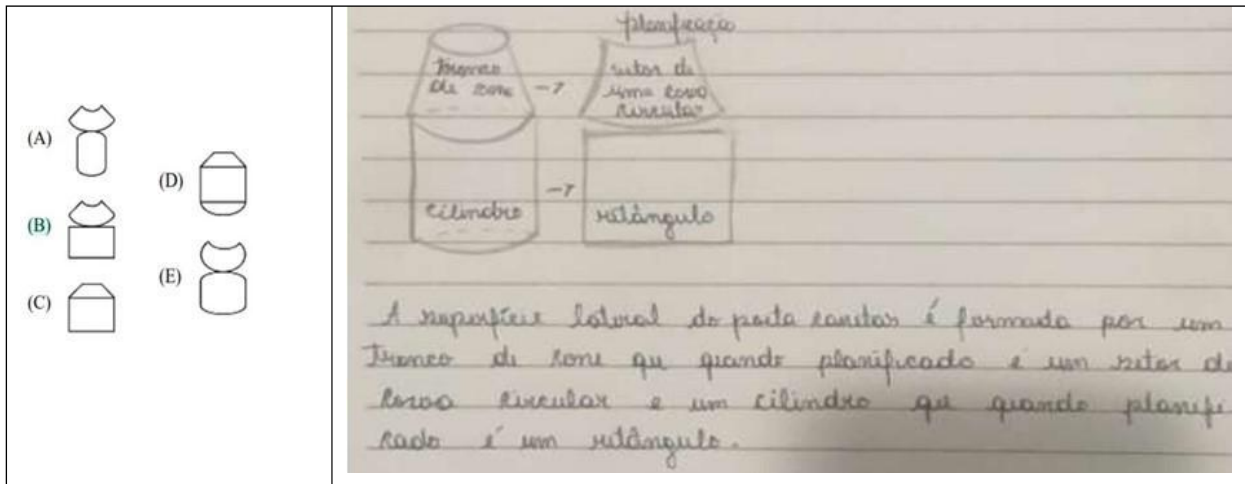 (A)
(B)
(C)
(D)
(E)
planificação
tronco
de cone
setor de
uma coroa
circular
cilindro
retângulo
A superfície lateral do porta canetas é formada por um
Tronco de cone qu quando planificado é um setor de
coroa circular e um cilindro qu quando planifi
cado é um retângulo.